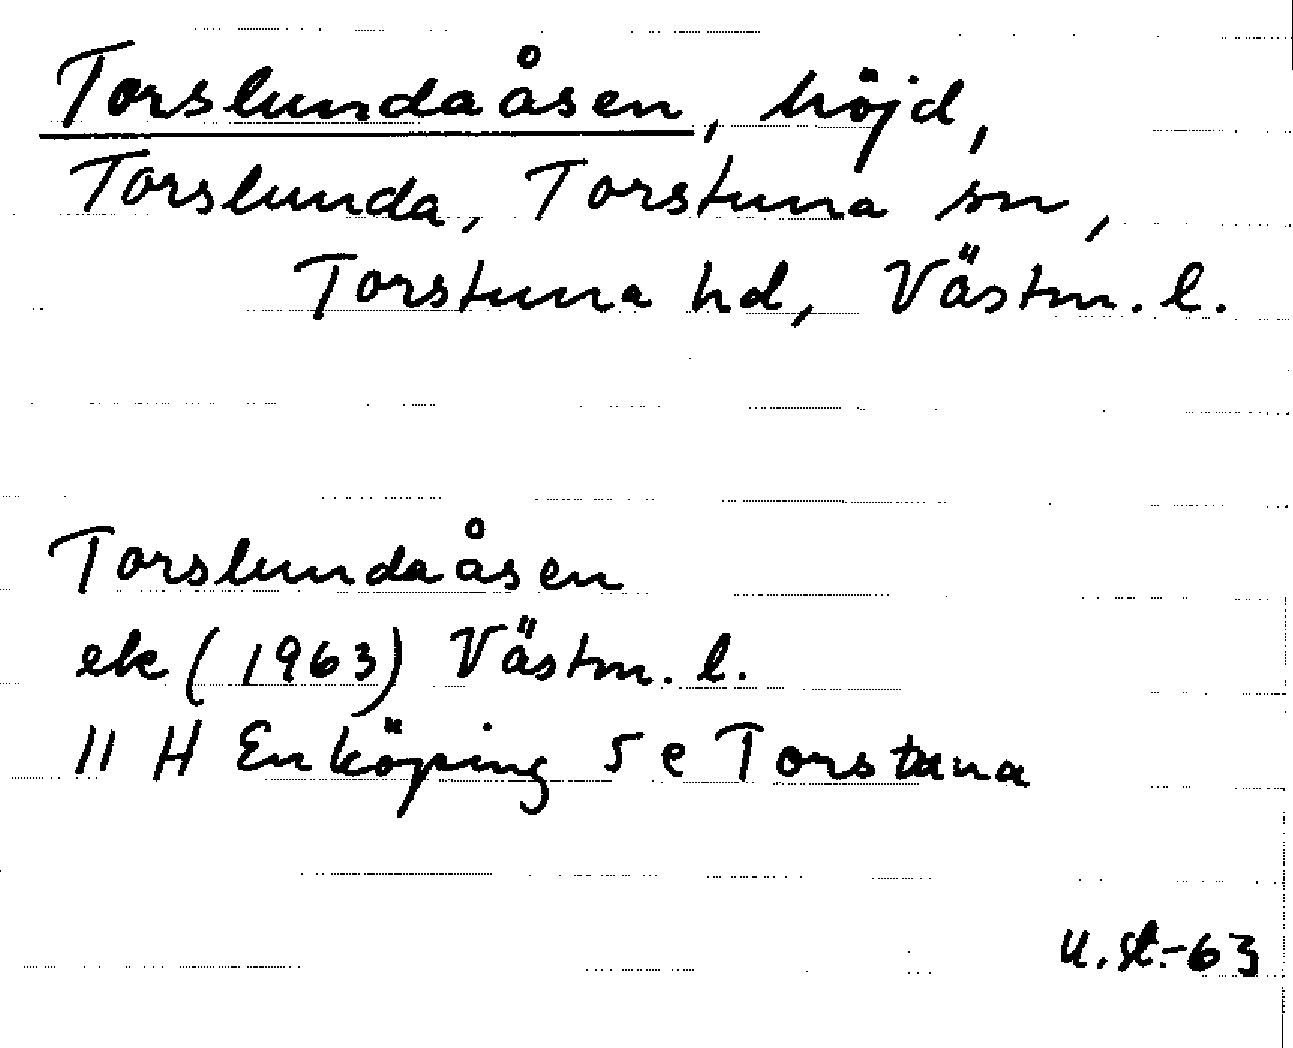 Torslundaåsen, höjd,
Torslunda, Torstuna sn,
Torstuna hd, Västm. l.
Torslundaåsen
ek (1963) Västm. l.
11 H Enköping 5 e Torstuna
U.st.-63